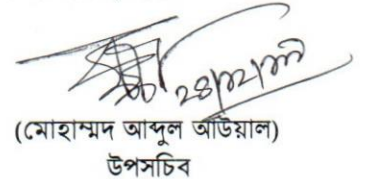 (মোহাম্মদ আব্দুল আউয়াল)
উপসচিব